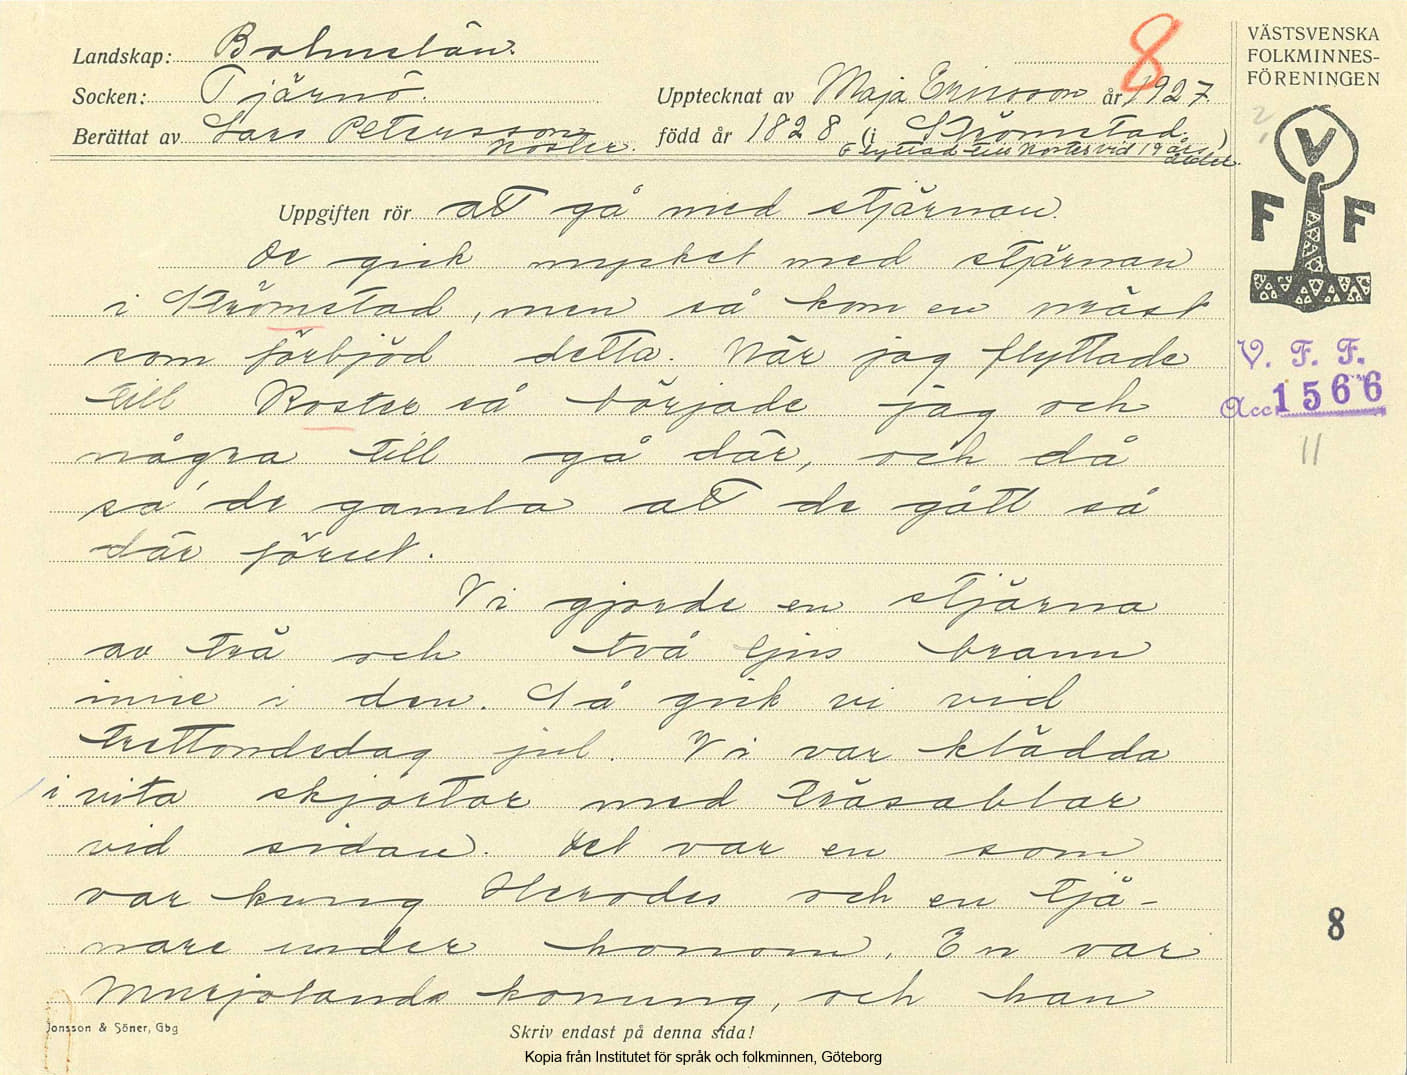 8
Landskap: Bohuslän.
Socken: Tjärnö.
Upptecknat av Maja Ericsson år 1927.
Berättat av Lars Petersson
Koster.
född år 1828 (i Strömstad.)
Flyttad till Koster vid 19 års
ålder.
VÄSTSVENSKA
FOLKMINNES-
FÖRENINGEN
V
F F
V. F. F.
Acc 1566
11
8
Uppgiften rör att gå med stjärnan.
De gick mycket med stjärnan
i Strömstad, men så kom en präst
som förbjöd detta. När jag flyttade
till Koster så började jag och
några till gå där, och då
sa' de gamla att de gått så
där förut.
Vi gjorde en stjärna
av trä och två ljus brann
inne i den. Så gick vi vid
trettondedag jul. Vi var klädda
i vita skjortor med träsablar
vid sidan. Det var en som
var kung Herodes och en tjä-
nare under honom. En var
Murjolands konung, och han
Jonsson & Söner, Gbg
Skriv endast på denna sida!
Kopia från Institutet för språk och folkminnen, Göteborg